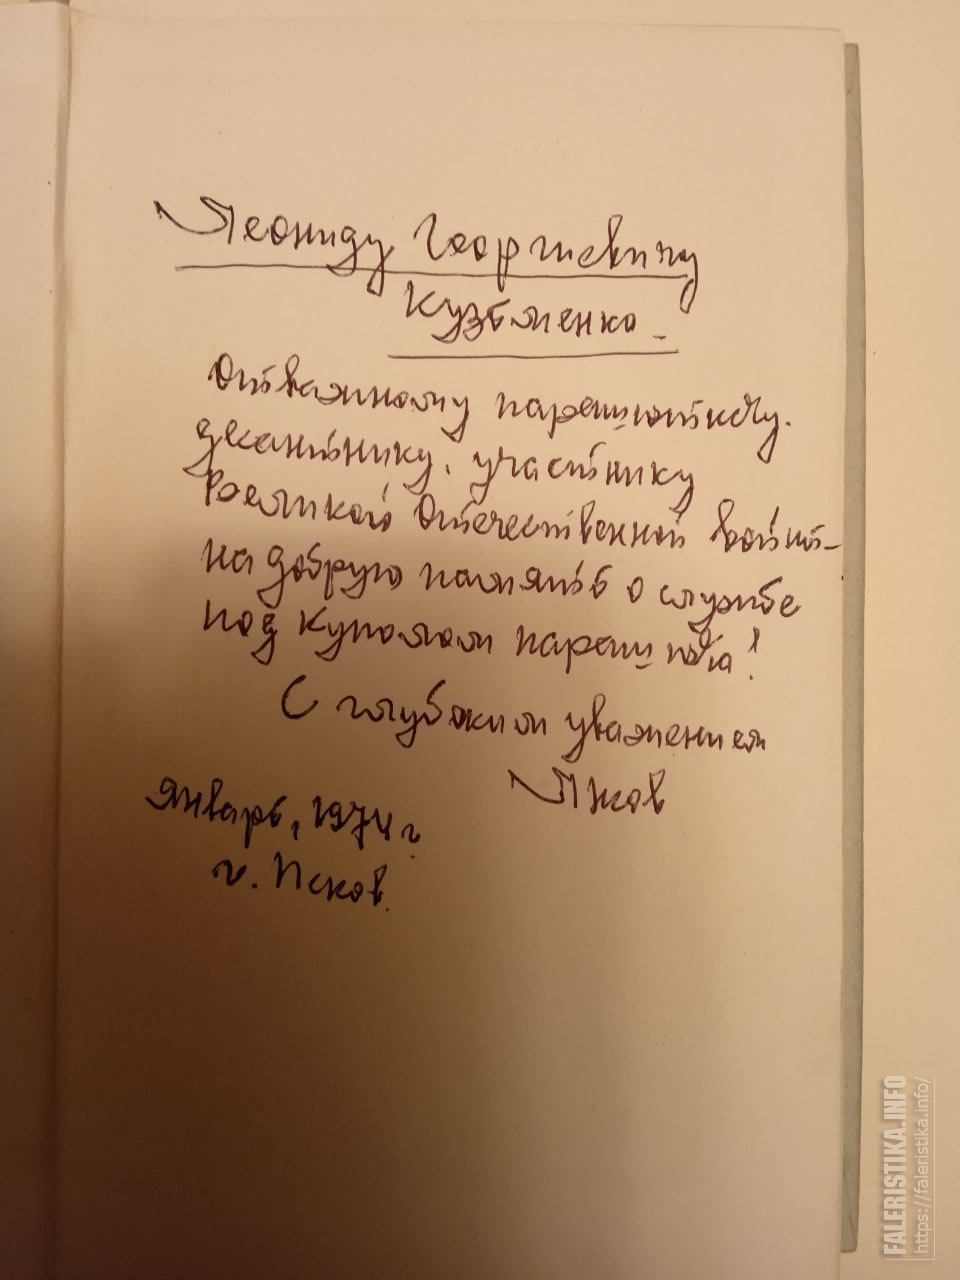 Леониду Георгиевичу
Кузьменко –
Отважному парашютисту.
десантнику, участнику
Великой Отечественной войны –
на добрую память о службе
под куполом парашюта!
С глубоким уважением
январь, 1974 г.
г. Псков.
FALERISTIKA.INFO
https://faleristika.info/